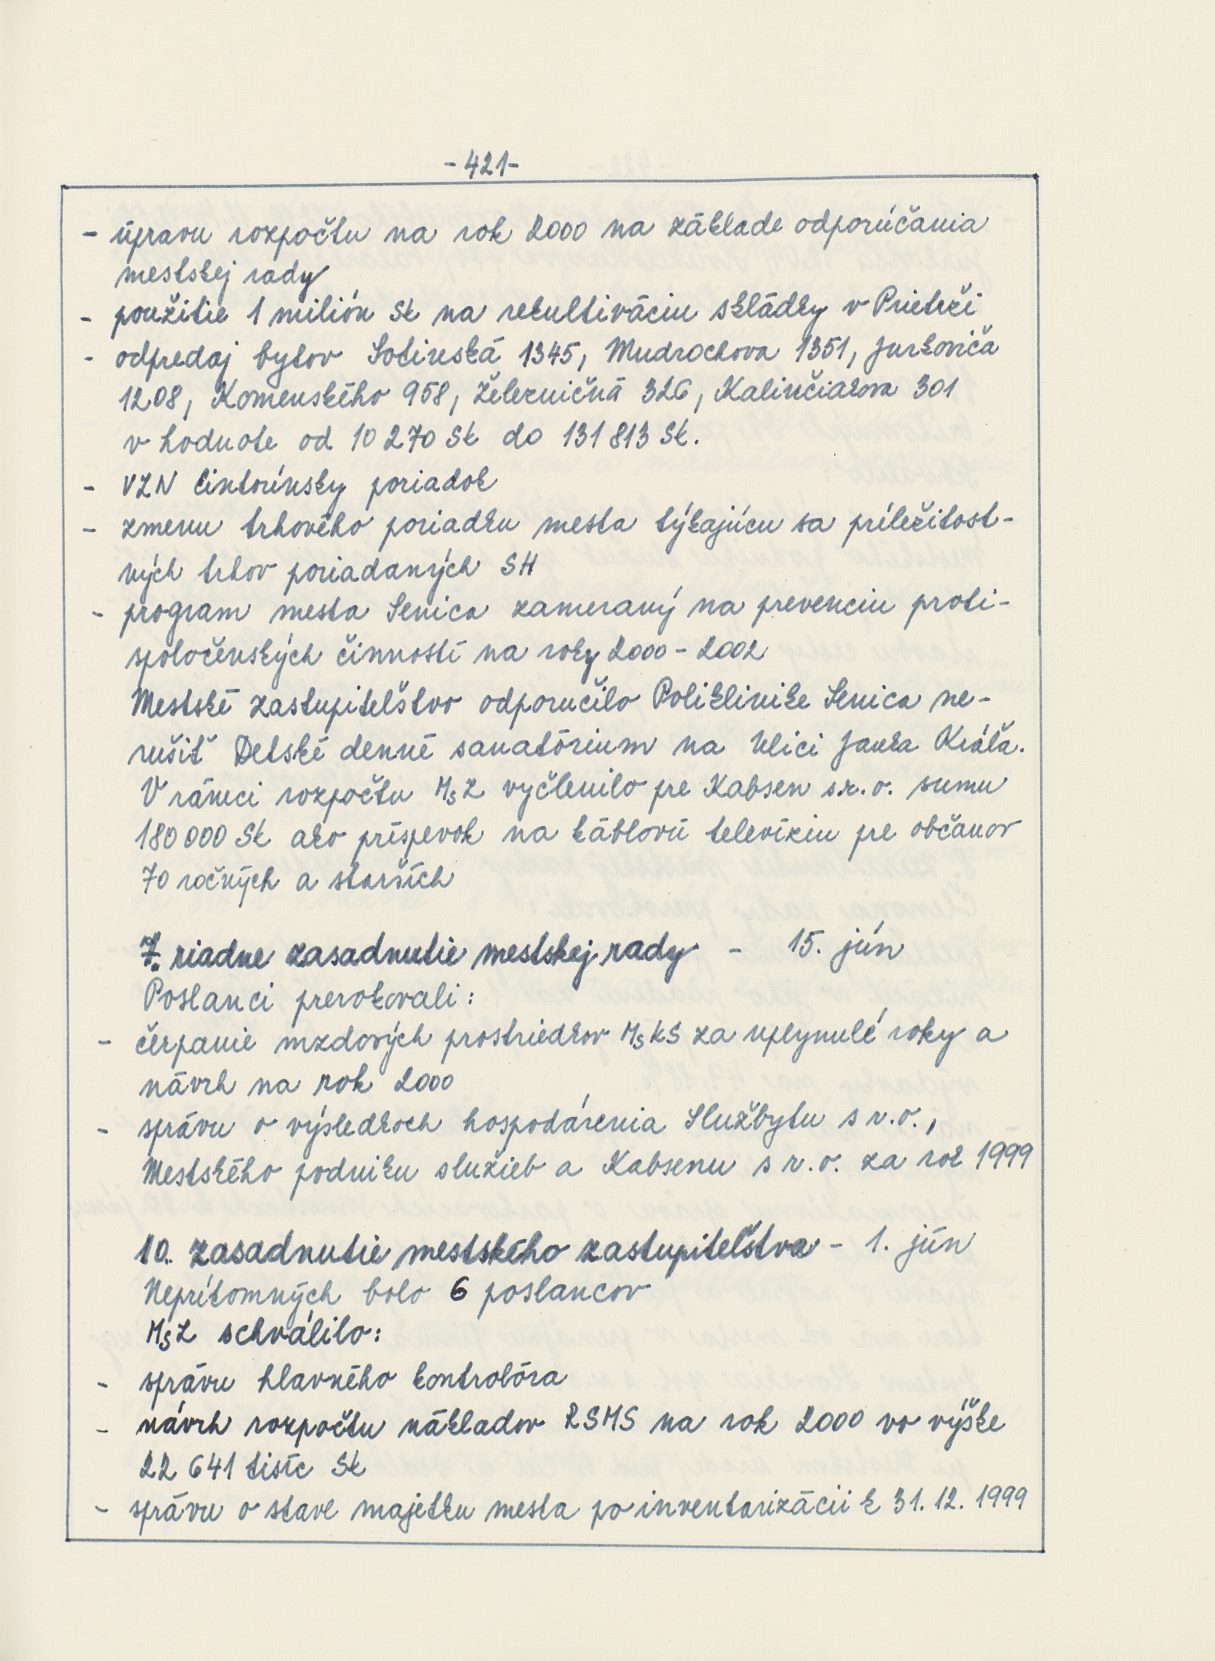 -421-
- úpravu rozpočtu na rok 2000 na základe odporúčania
mestskej rady
- použitie 1 milión Sk na rekultiváciu skládky v Prietrži
- odpredaj bytov Sotinská 1345, Mudrochova 1351, Jurkoviča
1208, Komenského 958, Železničná 326, Kalinčiakova 301
v hodnote od 10 270 Sk do 131 813 Sk.
- VZN Cintorínsky poriadok
- zmenu trhového poriadku mesta týkajúcu sa príležitost-
ných trhov poriadaných SH
- program mesta Senica zameraný na prevenciu proti-
spoločenských činností na roky 2000 - 2002
Mestské zastupiteľstvo odporučilo Poliklinike Senica ne-
rušiť Detské denné sanatórium na Ulici Janka Kráľa.
V rámci rozpočtu MsZ vyčlenilo pre Kabsen s.r.o. sumu
180 000 Sk ako príspevok na káblovú televíziu pre občanov
70 ročných a starších
7. riadne zasadnutie mestskej rady - 15. jún
Poslanci prerokovali:
- čerpanie mzdových prostriedkov MsKS za uplynulé roky a
návrh na rok 2000
- správu o výsledkoch hospodárenia Službytu s r.o.,
Mestského podniku služieb a Kabsenu s r.o. za rok 1999
10. zasadnutie mestského zastupiteľstva - 1. jún
Neprítomných bolo 6 poslancov
MsZ schválilo:
- správu hlavného kontrolóra
- návrh rozpočtu nákladov RSMS na rok 2000 vo výške
22 641 tisíc Sk
- správu o stave majetku mesta po inventarizácii k 31. 12. 1999